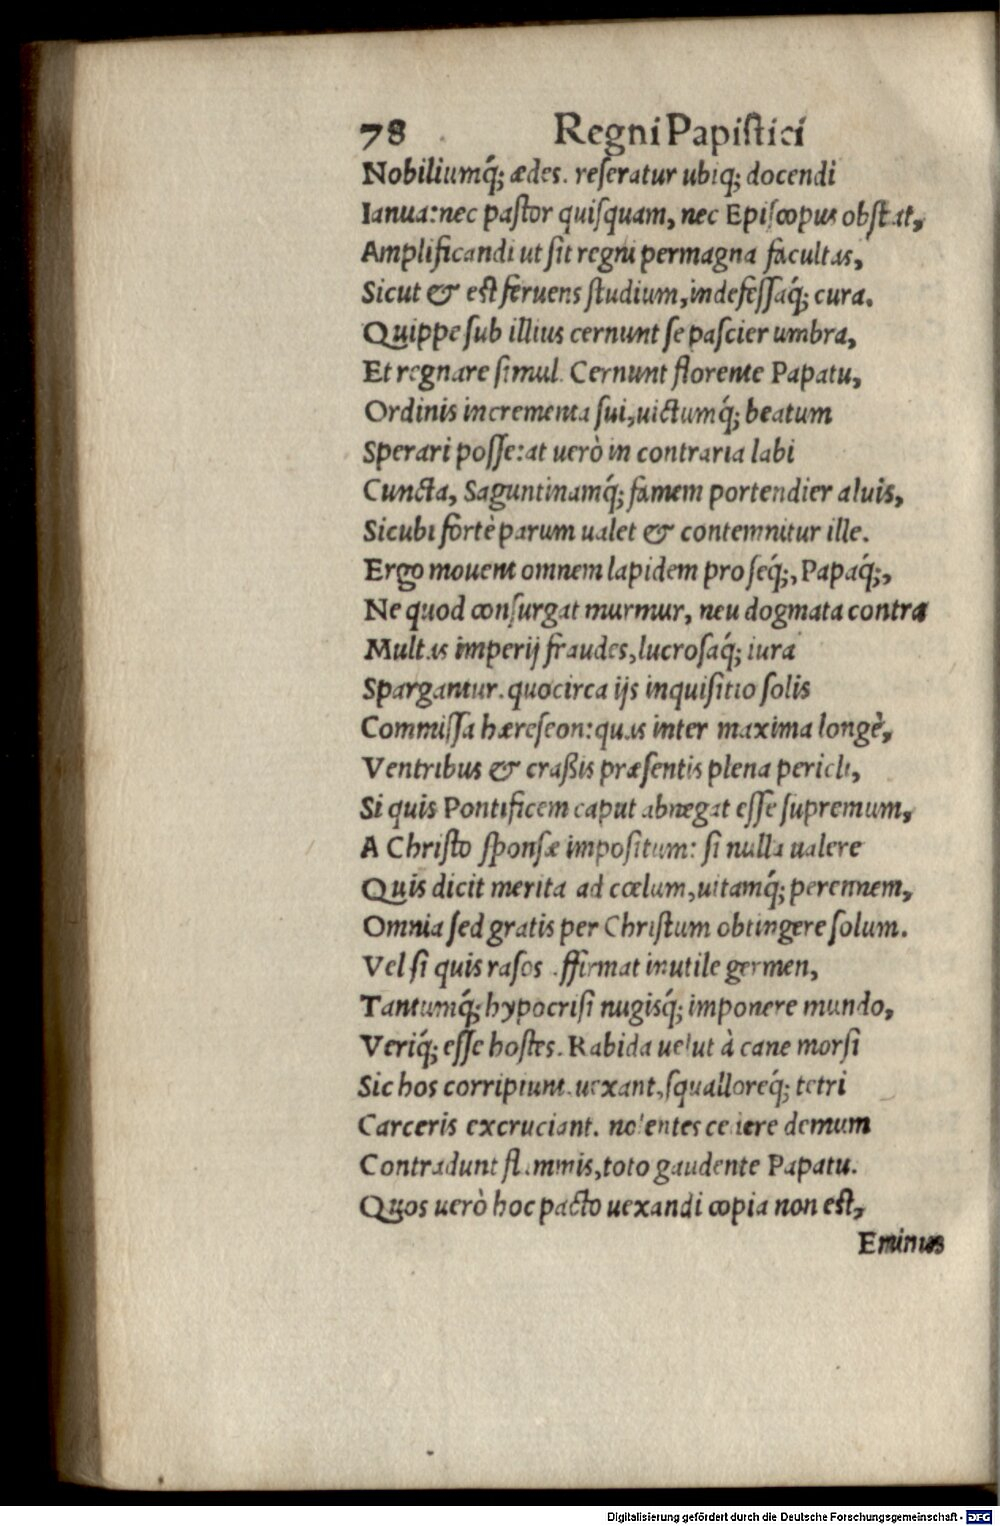 78 Regni Papistici
Nobiliumq́; ædes. reseratur ubiq; docendi
Ianua: nec pastor quisquam, nec Episcopus obstat,
Amplificandi ut sit regni permagna facultas,
Sicut & est feruens studium, indefessaq́; cura.
Quippe sub illius cernunt se pascier umbra,
Et regnare simul. Cernunt florente Papatu,
Ordinis incrementa sui, uictumq́; beatum
Sperari posse: at uerò in contraria labi
Cuncta, Saguntinamq́; famem portendier aluis,
Sicubi fortè parum ualet & contemnitur ille.
Ergo mouent omnem lapidem pro seq́;, Papaq́;,
Ne quod consurgat murmur, neu dogmata contra
Multas imperij fraudes, lucrosaq́; iura
Spargantur. quocirca ijs inquisitio solis
Commissa hæreseon: quas inter maxima longè,
Ventribus & craßis præsentis plena pericli,
Si quis Pontificem caput abnegat esse supremum,
A Christo sponsæ impositum: si nulla ualere
Quis dicit merita ad cœlum, uitamq́; perennem,
Omnia sed gratis per Christum obtingere solum.
Vel si quis rasos affirmat inutile germen,
Tantumq́; hypocrisi nugisq́; imponere mundo,
Veriq́; esse hostes. Rabida uelut à cane morsi
Sic hos corripiunt, uexant, squalloreq́; tetri
Carceris excruciant. nolentes cedere demum
Contradunt flammis, toto gaudente Papatu.
Quos uerò hoc pacto uexandi copia non est,
Eminus
Digitalisierung gefördert durch die Deutsche Forschungsgemeinschaft - DFG